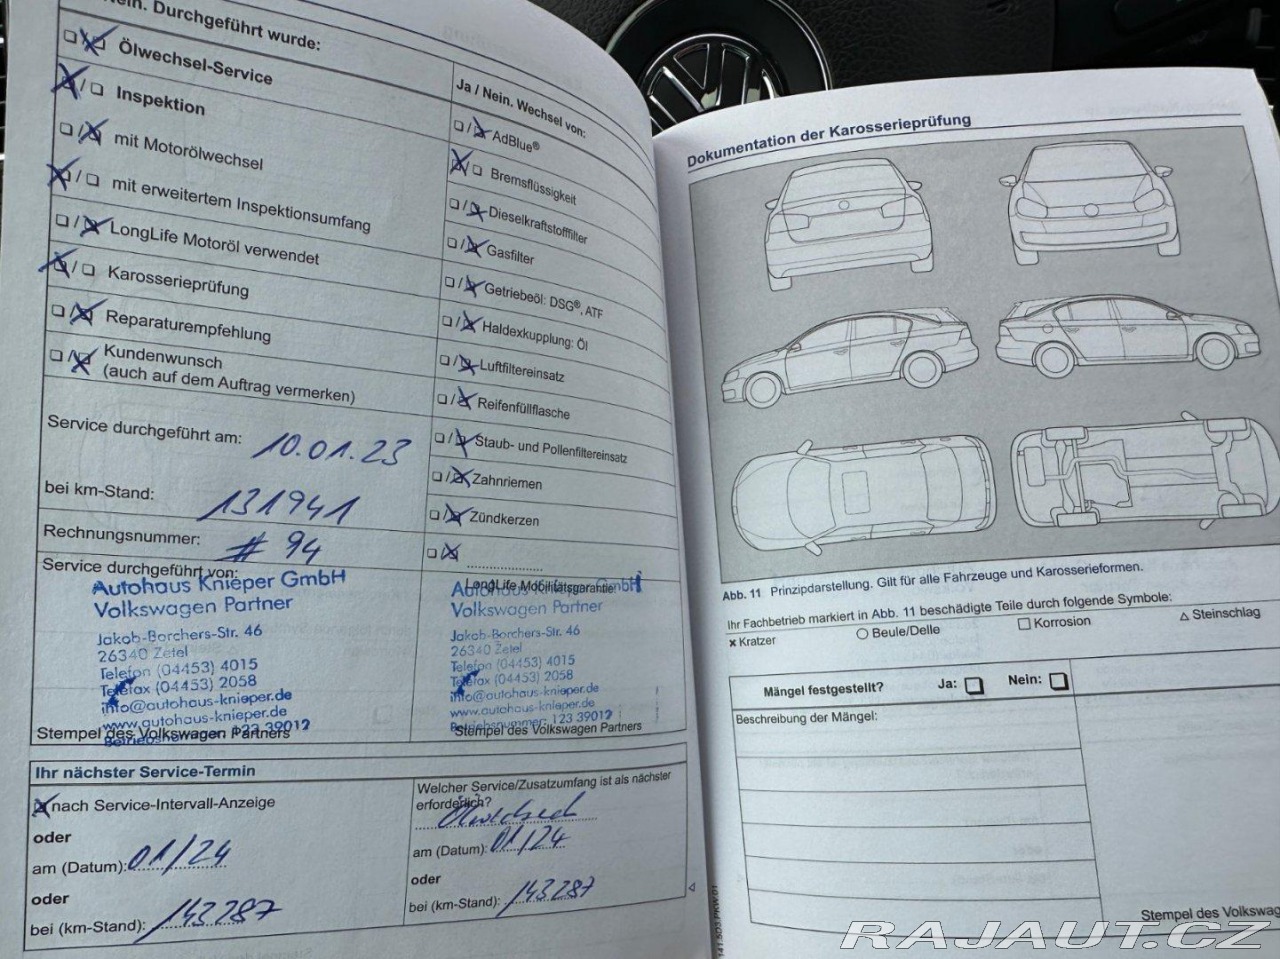 Nein. Durchgeführt wurde:
Ölwechsel-Service
Inspektion
mit Motorölwechsel
mit erweitertem Inspektionsumfang
LongLife Motoröl verwendet
Karosserieprüfung
Reparaturempfehlung
Kundenwunsch
(auch auf dem Auftrag vermerken)
Service durchgeführt am: 10.01.23
bei km-Stand: 131941
Rechnungsnummer: # 94
Service durchgeführt von:
Autohaus Knieper GmbH
Volkswagen Partner
Jakob-Borchers-Str. 46
26340 Zetel
Telefon (04453) 4015
Telefax (04453) 2058
info@autohaus-knieper.de
www.autohaus-knieper.de
Betriebsnummer 123 39012
Stempel des Volkswagen Partners
Ja / Nein. Wechsel von:
AdBlue®
Bremsflüssigkeit
Dieselkraftstofffilter
Gasfilter
Getriebeöl: DSG®, ATF
Haldexkupplung: Öl
Luftfiltereinsatz
Reifenfüllflasche
Staub- und Pollenfiltereinsatz
Zahnriemen
Zündkerzen
LongLife Mobilitätsgarantie:
Autohaus Knieper GmbH
Volkswagen Partner
Jakob-Borchers-Str. 46
26340 Zetel
Telefon (04453) 4015
Telefax (04453) 2058
info@autohaus-knieper.de
www.autohaus-knieper.de
Betriebsnummer: 123 39012
Stempel des Volkswagen Partners
Ihr nächster Service-Termin
nach Service-Intervall-Anzeige
oder
am (Datum): 01/24
oder
bei (km-Stand): 143287
Welcher Service/Zusatzumfang ist als nächster
erforderlich?
Ölwechsel
am (Datum): 01/24
oder
bei (km-Stand): 143287
Dokumentation der Karosserieprüfung
Abb. 11 Prinzipdarstellung. Gilt für alle Fahrzeuge und Karosserieformen.
Ihr Fachbetrieb markiert in Abb. 11 beschädigte Teile durch folgende Symbole:
× Kratzer ○ Beule/Delle □ Korrosion △ Steinschlag
Mängel festgestellt? Ja: Nein:
Beschreibung der Mängel:
Stempel des Volkswag
141.5D3.PKW.01
RAJAUT.CZ